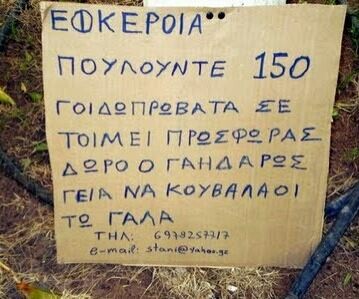 ΕΦΚΕΡΟΙΑ
ΠΟΥΛΟΥΝΤΕ 150
ΓΟΙΔΩΠΡΩΒΑΤΑ ΣΕ
ΤΟΙΜΕΙ ΠΡΩΣΦΩΡΑΣ
ΔΩΡΟ Ο ΓΑΗΔΑΡΩΣ
ΓΕΙΑ ΝΑ ΚΟΥΒΑΛΑΟΙ
ΤΩ ΓΑΛΑ
ΤΗΛ: 6978257717
e-mail: stani@yahoo.gz